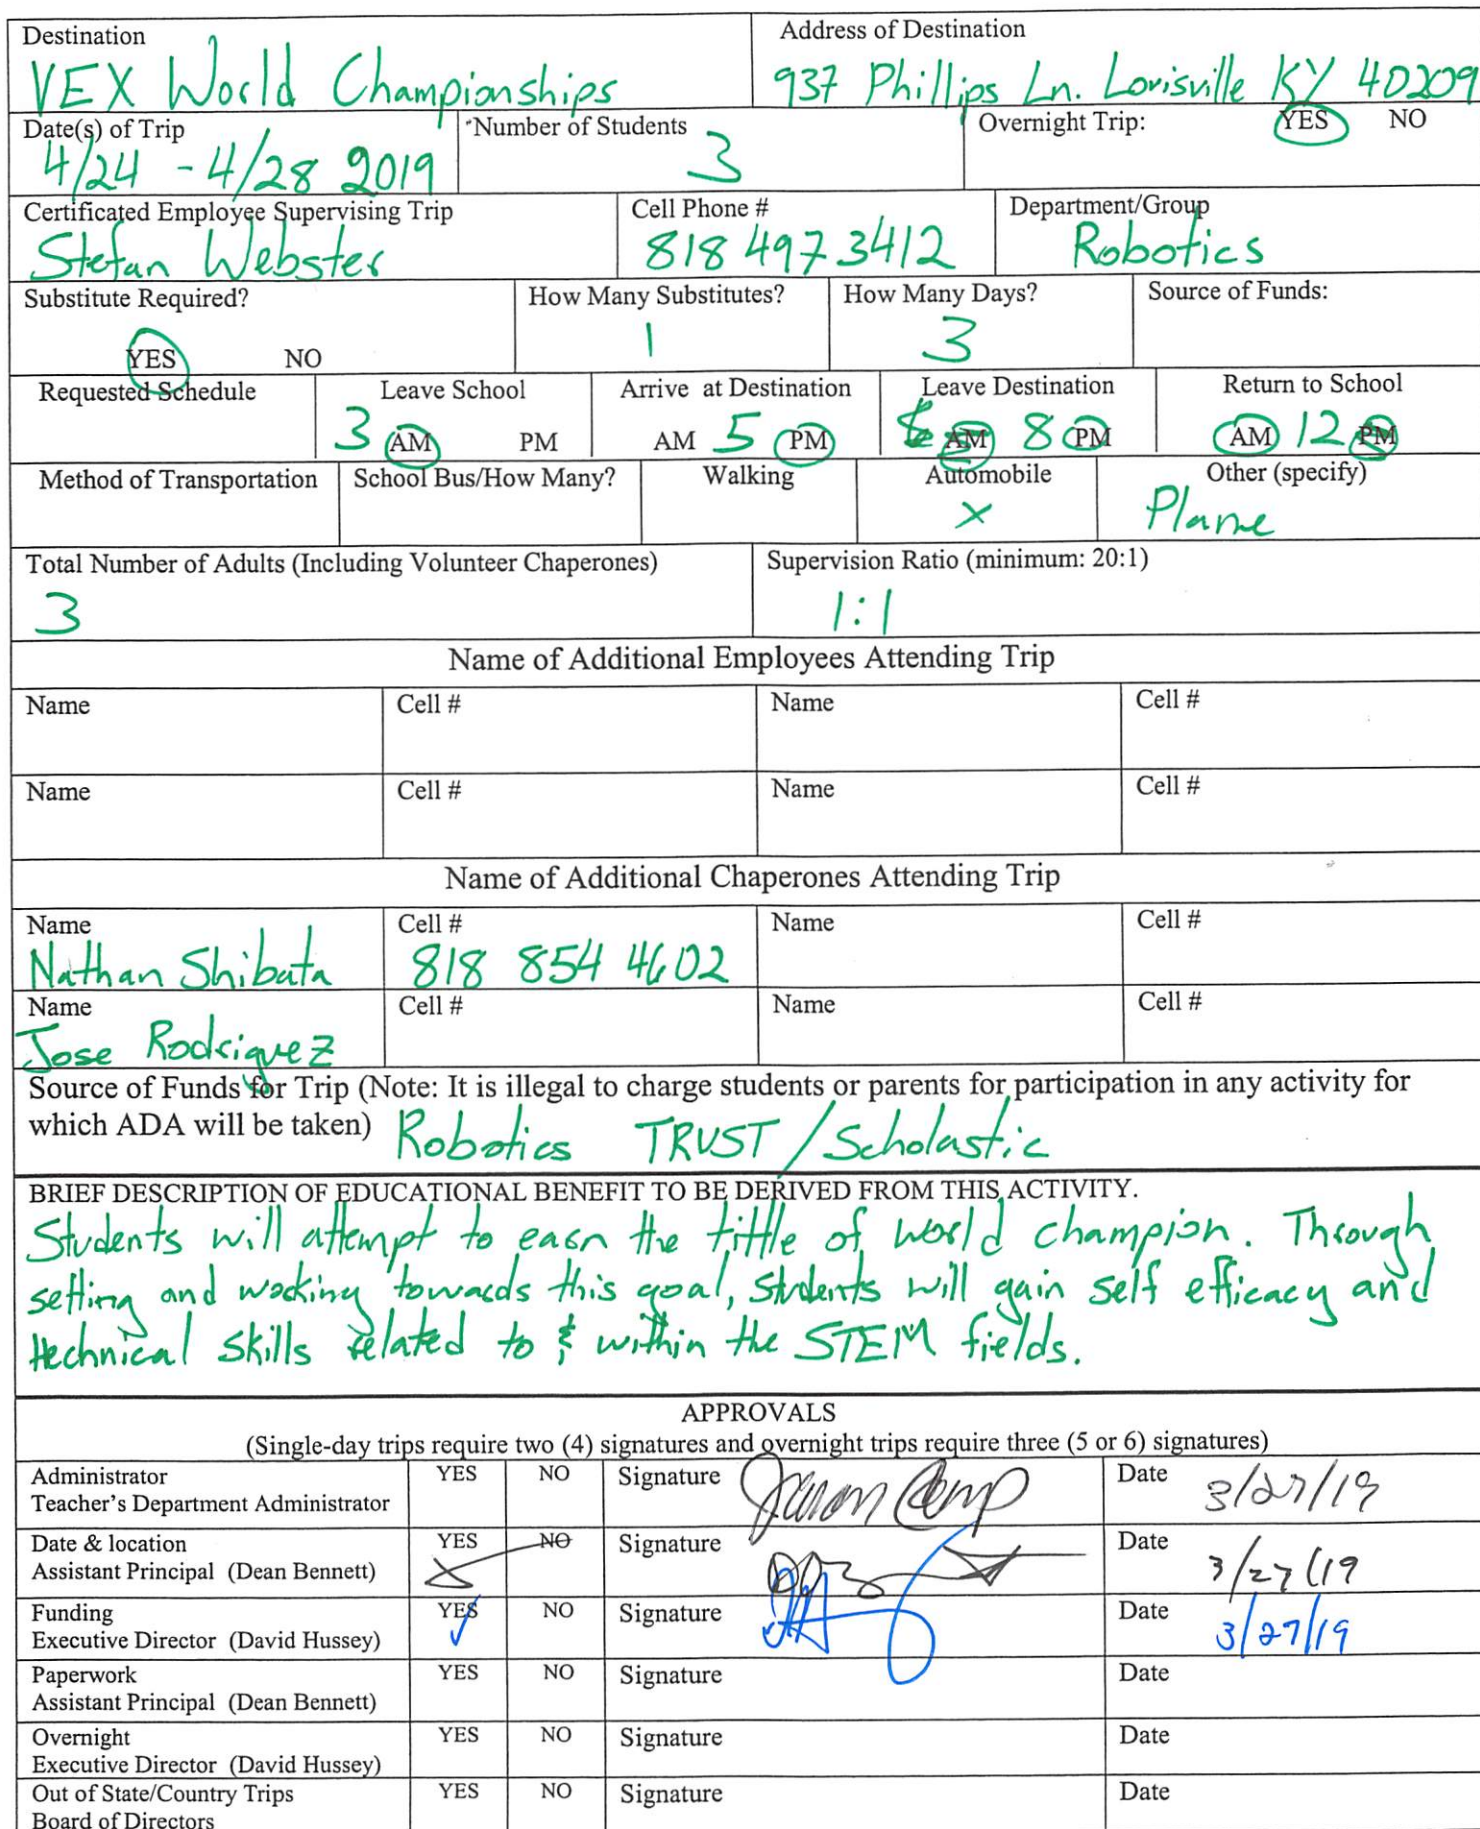 Destination
VEX World Championships
Address of Destination
937 Phillips Ln. Lovisville KY 40209
Date(s) of Trip
4/24 - 4/28 2019
Number of Students
3
Overnight Trip: YES NO
Certificated Employee Supervising Trip
Stefan Webster
Cell Phone #
818 497 3412
Department/Group
Robotics
Substitute Required?
YES NO
How Many Substitutes?
1
How Many Days?
3
Source of Funds:
Requested Schedule
Leave School
3 AM PM
Arrive at Destination
AM 5 PM
Leave Destination
AM 8 PM
Return to School
AM 12 PM
Method of Transportation
School Bus/How Many?
Walking
Automobile
X
Other (specify)
Plane
Total Number of Adults (Including Volunteer Chaperones)
3
Supervision Ratio (minimum: 20:1)
1:1
Name of Additional Employees Attending Trip
Name Cell # Name Cell #
Name Cell # Name Cell #
Name of Additional Chaperones Attending Trip
Name Cell # Name Cell #
Nathan Shibata 818 854 4602
Name Cell # Name Cell #
Jose Rodriguez
Source of Funds for Trip (Note: It is illegal to charge students or parents for participation in any activity for
which ADA will be taken) Robotics TRUST / Scholastic
BRIEF DESCRIPTION OF EDUCATIONAL BENEFIT TO BE DERIVED FROM THIS ACTIVITY.
Students will attempt to earn the tittle of world champion. Through
setting and working towards this goal, students will gain self efficacy and
technical skills related to & within the STEM fields.
APPROVALS
(Single-day trips require two (4) signatures and overnight trips require three (5 or 6) signatures)
Administrator YES NO Signature Date 3/27/19
Teacher's Department Administrator
Date & location YES NO Signature Date 3/27/19
Assistant Principal (Dean Bennett)
Funding YES NO Signature Date 3/27/19
Executive Director (David Hussey)
Paperwork YES NO Signature Date
Assistant Principal (Dean Bennett)
Overnight YES NO Signature Date
Executive Director (David Hussey)
Out of State/Country Trips YES NO Signature Date
Board of Directors